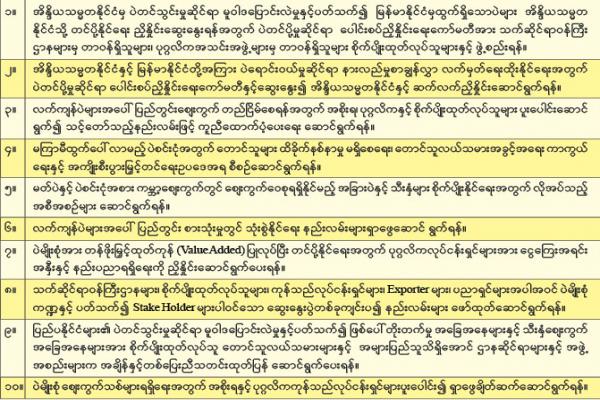 ၁။ အိန္ဒိယသမ္မတနိုင်ငံမှ ပဲတင်သွင်းမှုဆိုင်ရာ မူဝါဒပြောင်းလဲမှုနှင့်ပတ်သက်၍ မြန်မာနိုင်ငံမှထွက်ရှိသောပဲများ အိန္ဒိယသမ္မတ
နိုင်ငံသို့ တင်ပို့နိုင်ရေး ညှိနှိုင်းဆွေးနွေးရန်အတွက် ပဲတင်ပို့မှုဆိုင်ရာ ပေါင်းစပ်ညှိနှိုင်းရေးကော်မတီအား သက်ဆိုင်ရာဝန်ကြီး
ဌာနများမှ တာဝန်ရှိသူများ၊ ပုဂ္ဂလိကအသင်းအဖွဲ့များမှ တာဝန်ရှိသူများ၊ စိုက်ပျိုးထုတ်လုပ်သူများနှင့် ဖွဲ့စည်းရန်။
၂။ အိန္ဒိယသမ္မတနိုင်ငံနှင့် မြန်မာနိုင်ငံတို့အကြား ပဲရောင်းဝယ်မှုဆိုင်ရာ နားလည်မှုစာချွန်လွှာ လက်မှတ်ရေးထိုးနိုင်ရေးအတွက်
ပဲတင်ပို့မှုဆိုင်ရာ ပေါင်းစပ်ညှိနှိုင်းရေးကော်မတီနှင့်ဆွေးနွေး၍ အိန္ဒိယသမ္မတနိုင်ငံနှင့် ဆက်လက်ညှိနှိုင်းဆောင်ရွက်ရန်။
၃။ လက်ကျန်ပဲများအပေါ် ပြည်တွင်းစျေးကွက် တည်ငြိမ်စေရန်အတွက် အစိုးရ၊ ပုဂ္ဂလိကနှင့် စိုက်ပျိုးထုတ်လုပ်သူများ ပူးပေါင်းဆောင်
ရွက်၍ သင့်တော်သည့်နည်းလမ်းဖြင့် ကူညီထောက်ပံ့ပေးရေး ဆောင်ရွက်ရန်။
၄။ မကြာမီထွက်ပေါ်လာမည့် ပဲစင်းငုံအတွက် တောင်သူများ ထိခိုက်နစ်နာမှု မရှိစေရေး၊ တောင်သူလယ်သမားအခွင့်အရေး ကာကွယ်
ရေးနှင့် အကျိုးစီးပွားမြှင့်တင်ရေးဥပဒေအရ စီစဉ်ဆောင်ရွက်ရန်။
၅။ မတ်ပဲနှင့် ပဲစင်းငုံအစား ကမ္ဘာ့စျေးကွက်တွင် စျေးကွက်ဝေစုရရှိနိုင်မည့် အခြားပဲနှင့် သီးနှံများ စိုက်ပျိုးနိုင်ရေးအတွက် လိုအပ်သည့်
အစီအစဉ်များ ဆောင်ရွက်ရန်။
၆။ လက်ကျန်ပဲများအပေါ် ပြည်တွင်း စားသုံးမှုတွင် သုံးစွဲနိုင်ရေး နည်းလမ်းများရှာဖွေဆောင် ရွက်ရန်။
၇။ ပဲမျိုးစုံအား တန်ဖိုးမြှင့်ထုတ်ကုန် (Value Added) ပြုလုပ်ပြီး တင်ပို့နိုင်ရေးအတွက် ပုဂ္ဂလိကလုပ်ငန်းရှင်များအား ငွေကြေးအရင်း
အနှီးနှင့် နည်းပညာရရှိရေးကို ညှိနှိုင်းဆောင်ရွက်ပေးရန်။
၈။ သက်ဆိုင်ရာဝန်ကြီးဌာနများ၊ စိုက်ပျိုးထုတ်လုပ်သူများ၊ ကုန်သည်လုပ်ငန်းရှင်များ၊ Exporter များ၊ ပညာရှင်များအပါအဝင် ပဲမျိုးစုံ
ကဏ္ဍနှင့် ပတ်သက်၍ Stake Holder များပါဝင်သော ဆွေးနွေးပွဲတစ်ခုကျင်းပ၍ နည်းလမ်းများ ဖော်ထုတ်ဆောင်ရွက်ရန်။
၉။ ပြည်ပနိုင်ငံများ၏ ပဲတင်သွင်းမှုဆိုင်ရာ မူဝါဒပြောင်းလဲမှုနှင့်ပတ်သက်၍ ဖြစ်ပေါ်တိုးတက်မှု အခြေအနေများနှင့် သီးနှံစျေးကွက်
အခြေအနေများအား စိုက်ပျိုးထုတ်လုပ်သူ တောင်သူလယ်သမားများနှင့် အများပြည်သူသိရှိအောင် ဌာနဆိုင်ရာများနှင့် အဖွဲ့
အစည်းများက အချိန်နှင့်တစ်ပြေးညီသတင်းထုတ်ပြန် ဆောင်ရွက်ပေးရန်။
၁၀။ ပဲမျိုးစုံ စျေးကွက်သစ်များရရှိရေးအတွက် အစိုးရနှင့် ပုဂ္ဂလိကကုန်သည်လုပ်ငန်းရှင်များပူးပေါင်း၍ ရှာဖွေချိတ်ဆက်ဆောင်ရွက်ရန်။